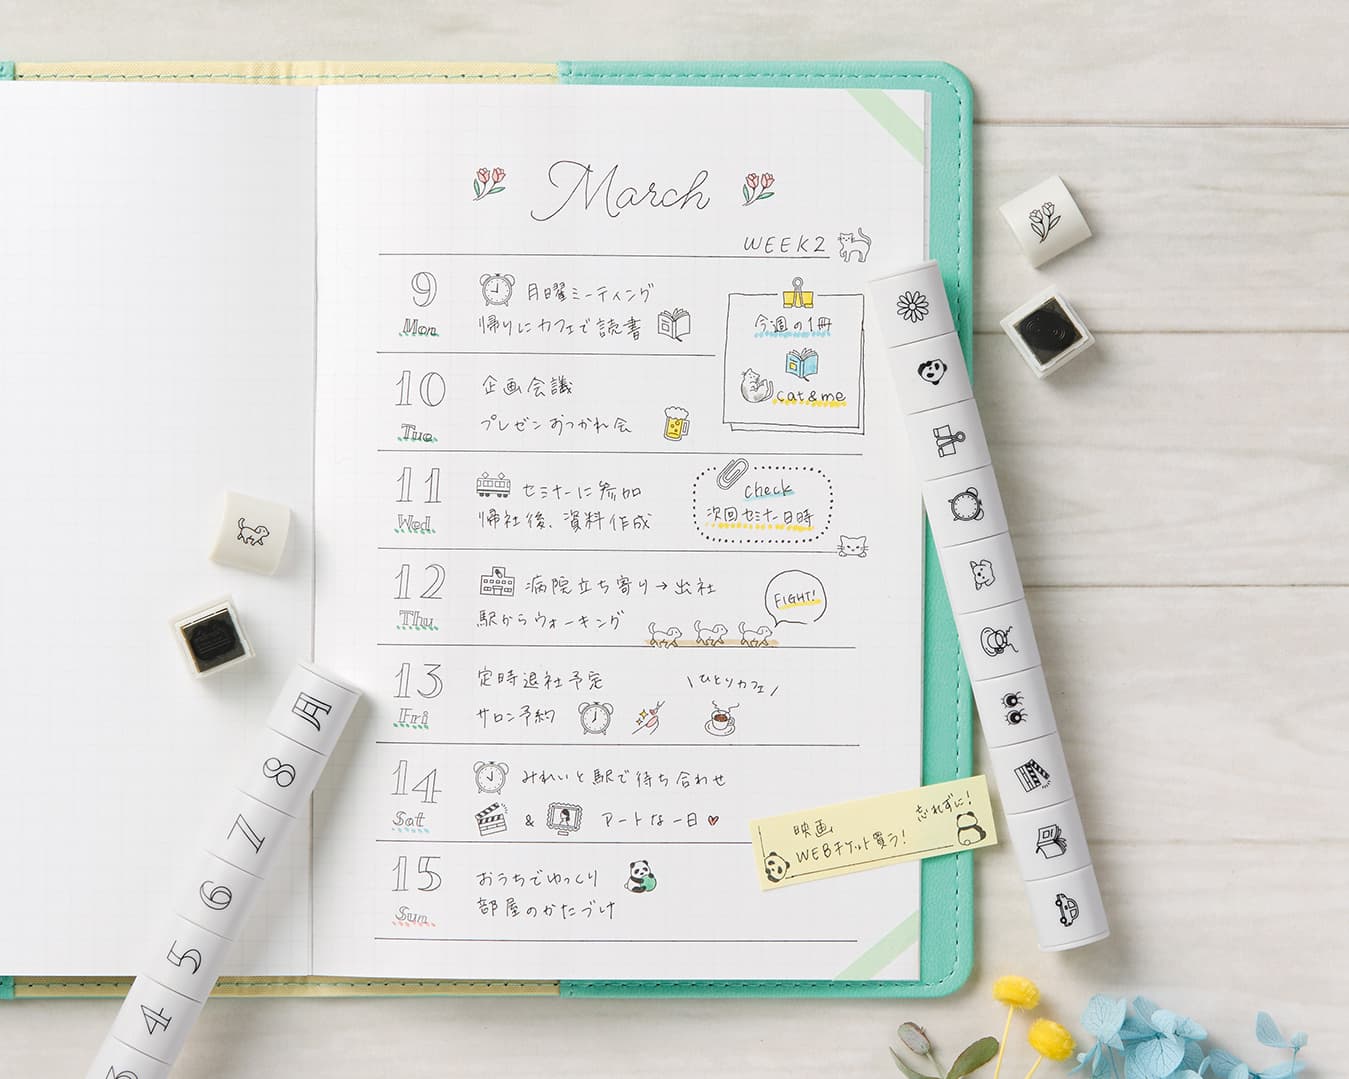 March
WEEK2
9
Mon
月曜ミーティング
帰りにカフェで読書
今週の1冊
cat&me
10
Tue
企画会議
プレゼンおつかれ会
11
Wed
セミナーに参加
帰社後、資料作成
check
次回セミナー日時
12
Thu
病院立ち寄り→出社
駅からウォーキング
FIGHT!
13
Fri
定時退社予定
サロン予約
\ひとりカフェ/
14
Sat
みれいと駅で待ち合わせ
& アートな一日
15
Sun
おうちでゆっくり
部屋のかたづけ
忘れずに!
映画
WEBチケット買う!
月
8
7
6
5
4
3